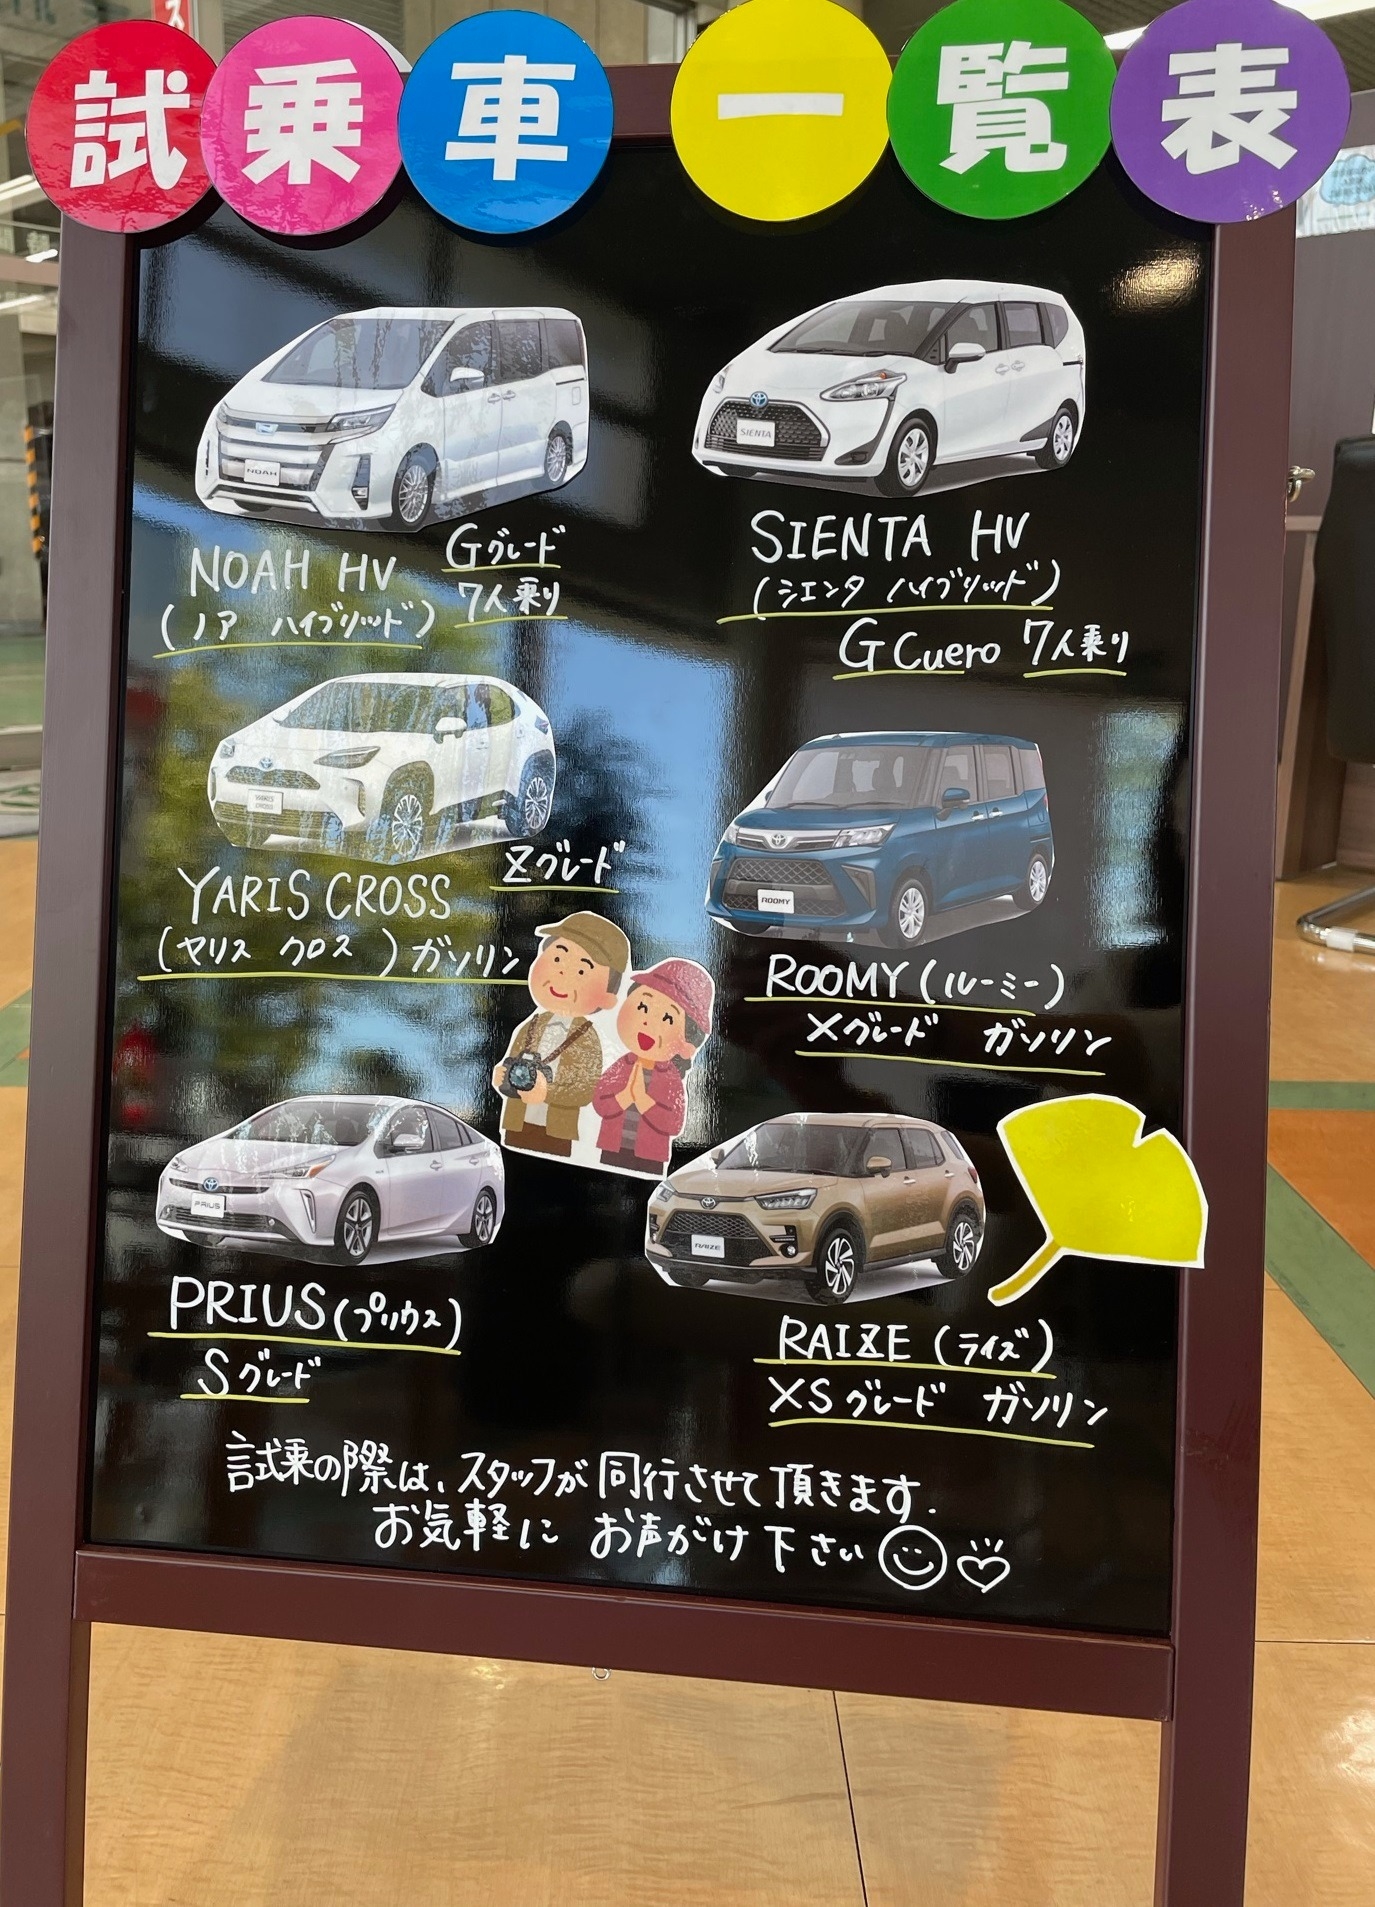 試乗車一覧表
NOAH
NOAH HV Gグレード
(ノア ハイブリッド) 7人乗り
SIENTA
SIENTA HV
(シエンタ ハイブリッド)
G Cuero 7人乗り
YARIS CROSS
YARIS CROSS Zグレード
(ヤリス クロス) ガソリン
ROOMY
ROOMY (ルーミー)
Xグレード ガソリン
PRIUS
PRIUS (プリウス)
Sグレード
RAIZE
RAIZE (ライズ)
XSグレード ガソリン
試乗の際は、スタッフが同行させて頂きます.
お気軽に お声がけ下さい